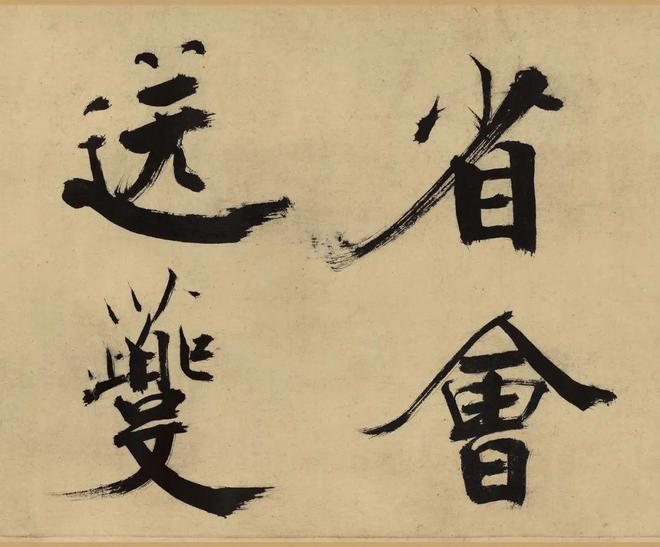 省會
送夔